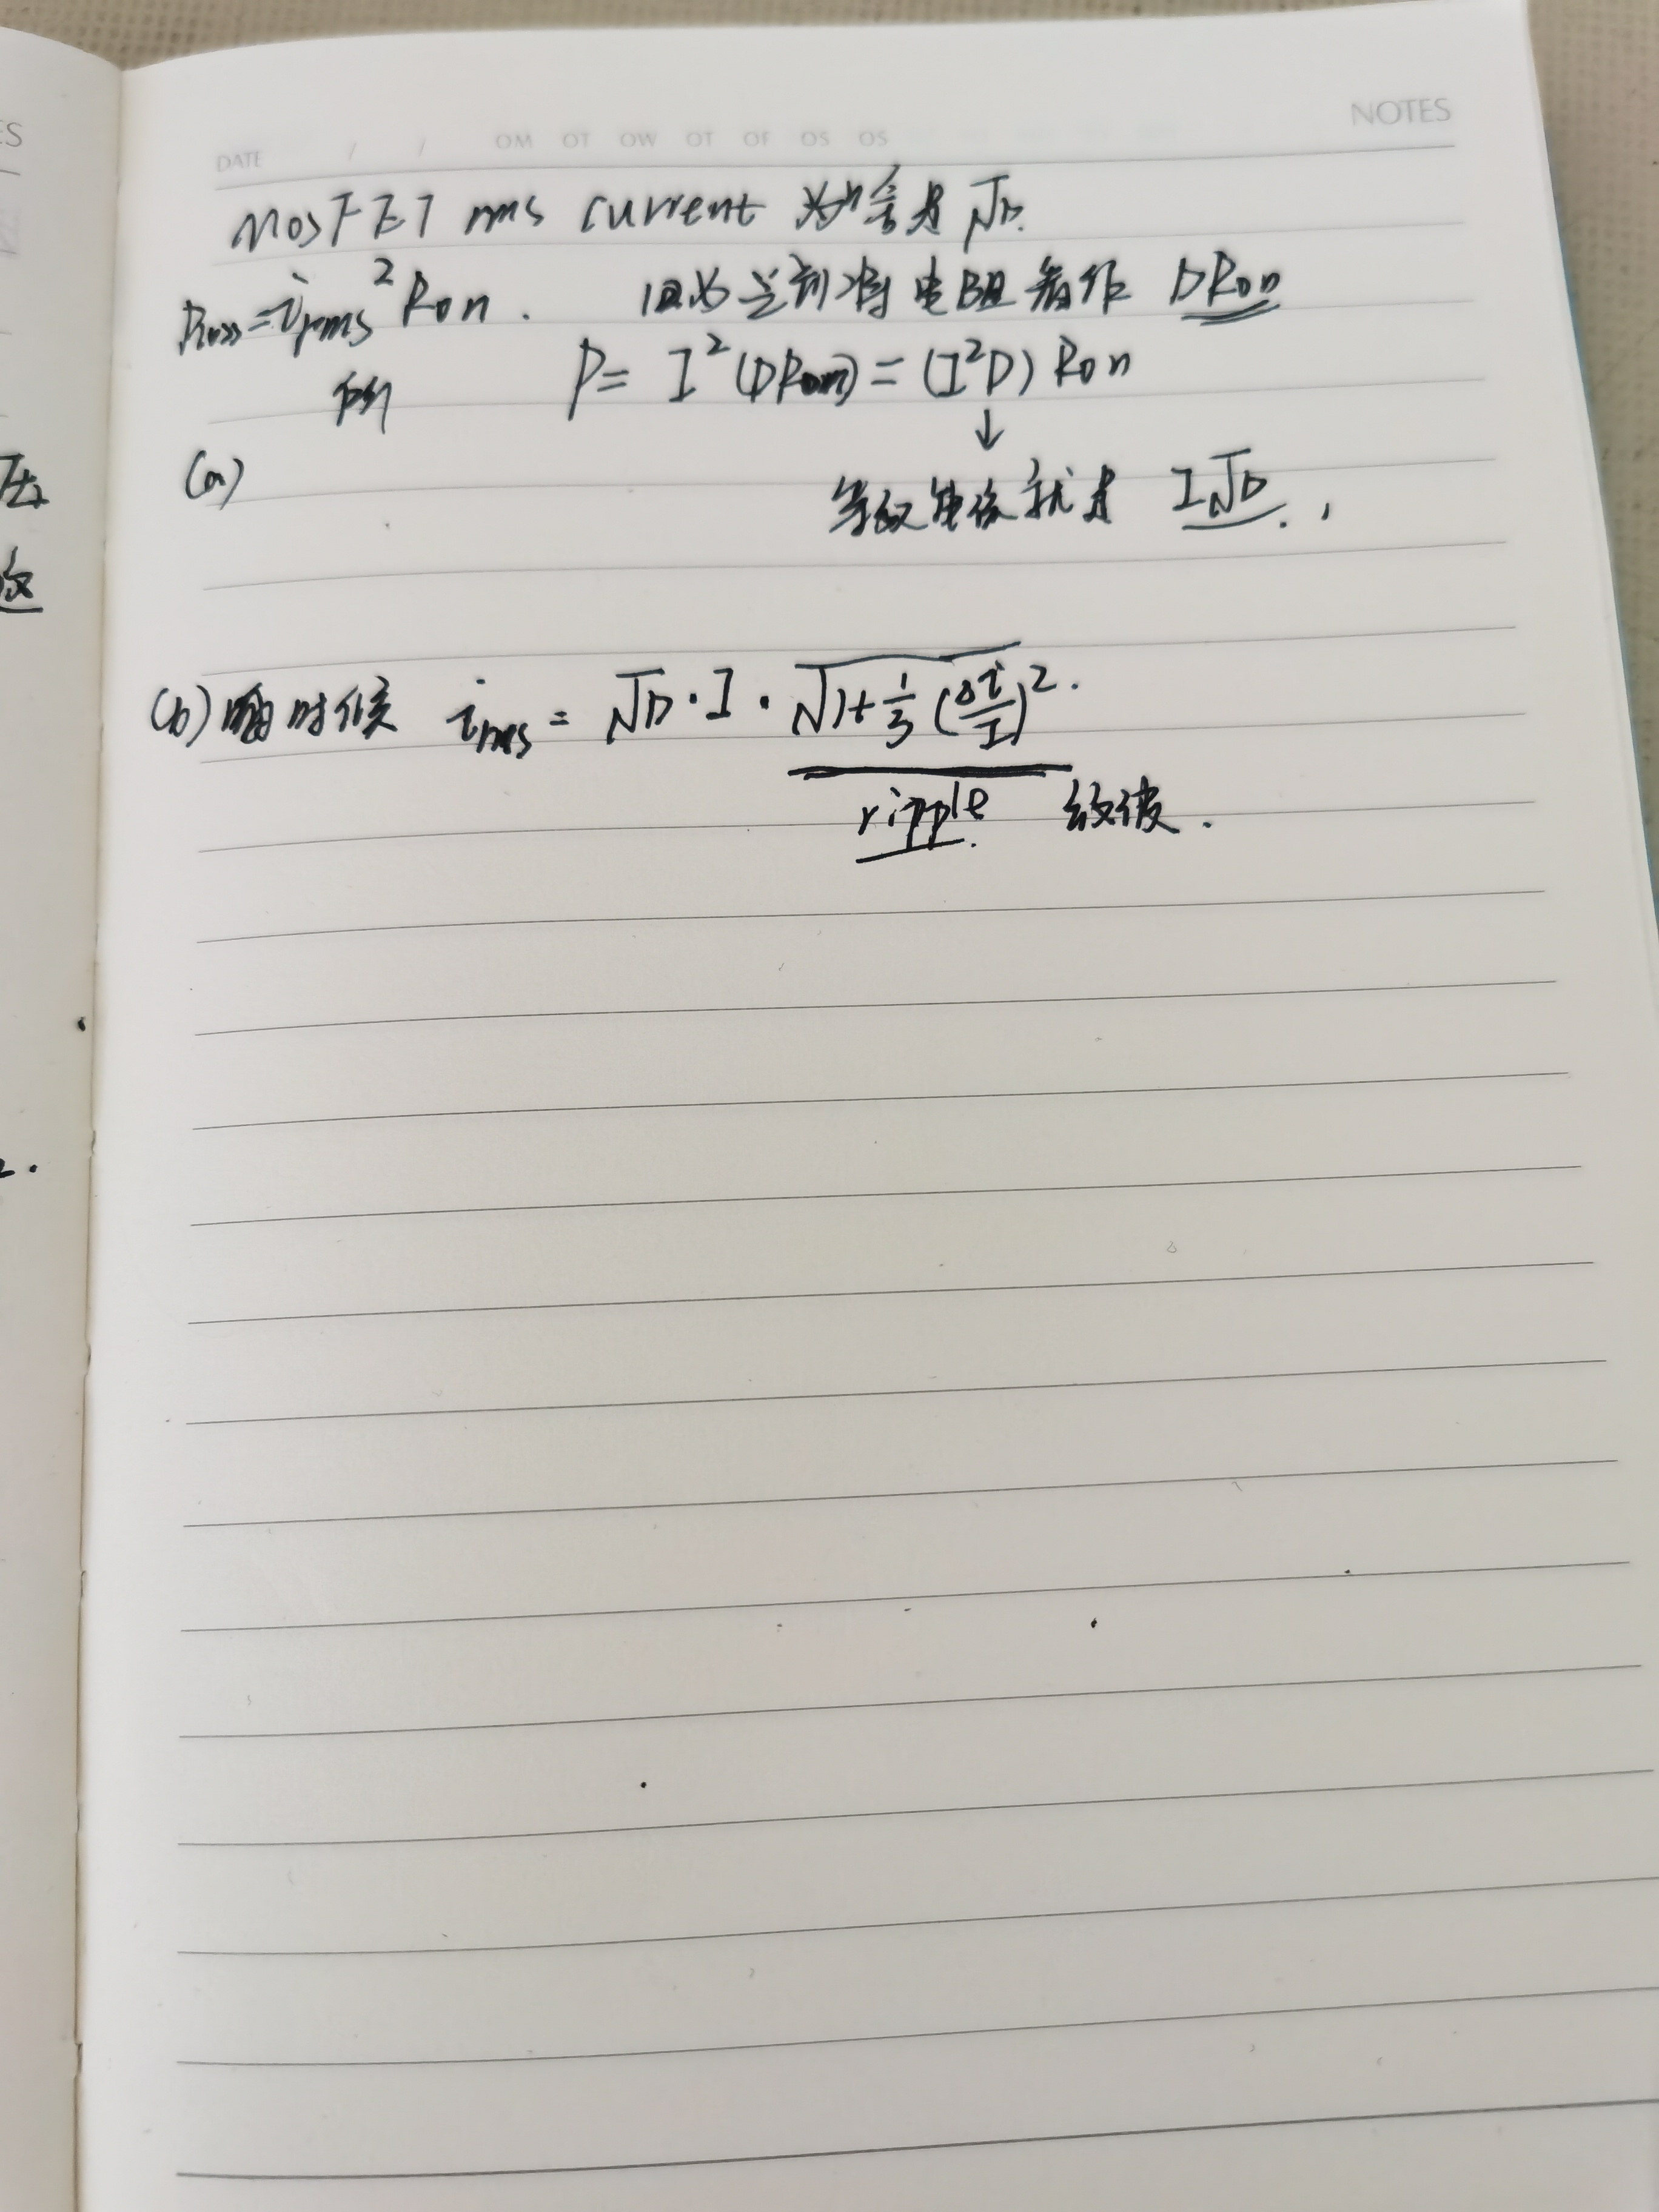 ES
NOTES
DATE / / OM OT OW OT OF OS OS
MOSFET rms current 为什么是 √D.
Ploss = irms² Ron. 因为之前将电阻看作 DRon
所以 P = I²(DRon) = (I²D) Ron
↓
(a)
等效电流就是 I√D.
压
这
(b) 时候 irms = √D · I · √1+⅓(Δi/I)².
ripple 纹波.
2.